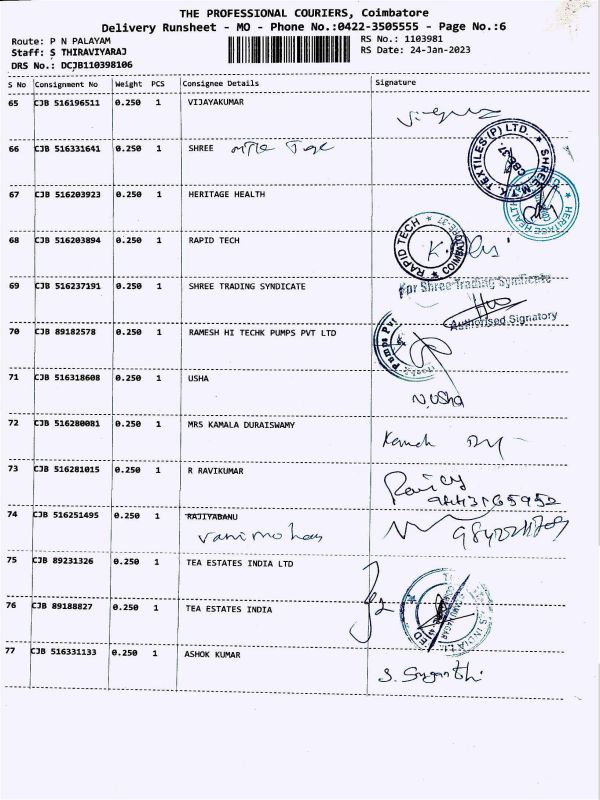 THE PROFESSIONAL COURIERS, Coimbatore
Delivery Runsheet - MO - Phone No.:0422-3505555 - Page No.:6
Route: P N PALAYAM
RS No.: 1103981
Staff: S THIRAVIYARAJ
RS Date: 24-Jan-2023
DRS No.: DCJB110398106
S No Consignment No Weight PCS Consignee Details Signature
65 CJB 516196511 0.250 1 VIJAYAKUMAR
66 CJB 516331641 0.250 1 SHREE
TEXTILES (P) LTD. * SHREE
67 CJB 516203923 0.250 1 HERITAGE HEALTH
HERITAGE HEALTH
68 CJB 516203894 0.250 1 RAPID TECH
RAPID TECH * COIMBATORE-37 *
69 CJB 516237191 0.250 1 SHREE TRADING SYNDICATE
For Shree Trading Syndicate
Authorised Signatory
70 CJB 89182578 0.250 1 RAMESH HI TECHK PUMPS PVT LTD
Pumps Pvt
71 CJB 516318608 0.250 1 USHA
N.Usha
72 CJB 516280081 0.250 1 MRS KAMALA DURAISWAMY
73 CJB 516281015 0.250 1 R RAVIKUMAR
9443165952
74 CJB 516251495 0.250 1 RAJIYABANU
Vanimohan
75 CJB 89231326 0.250 1 TEA ESTATES INDIA LTD
76 CJB 89188827 0.250 1 TEA ESTATES INDIA
77 CJB 516331133 0.250 1 ASHOK KUMAR
S. Suganthi